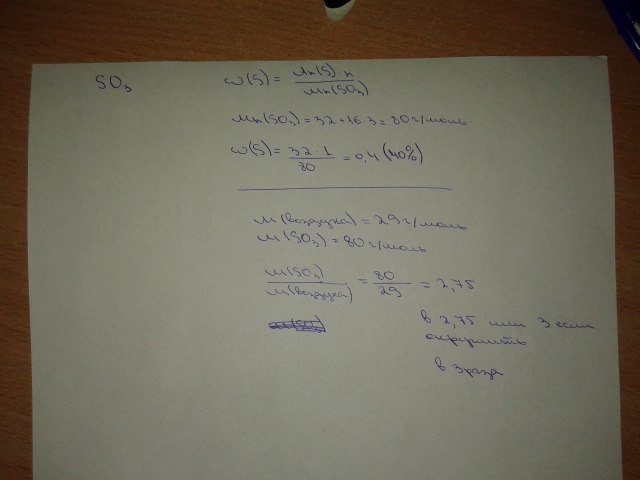 SO₃
ω(S) = Mr(S)·n / Mr(SO₃)
Mr(SO₃) = 32 + 16·3 = 80 г/моль
ω(S) = 32·1 / 80 = 0,4 (40%)
M(воздуха) = 29 г/моль
M(SO₃) = 80 г/моль
M(SO₃) / M(воздуха) = 80 / 29 = 2,75
в 2,75 или 3 если
округлить
в 3 раза